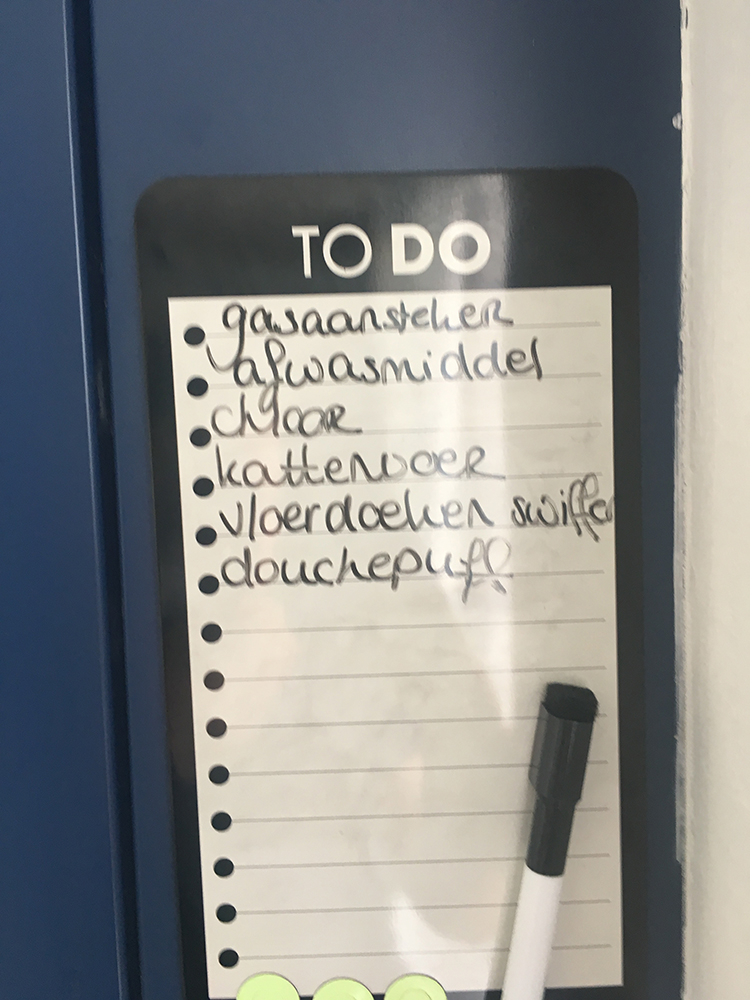 TO DO
gasaansteker
afwasmiddel
chloor
kattenvoer
vloerdoeken swiffer
douchepuff